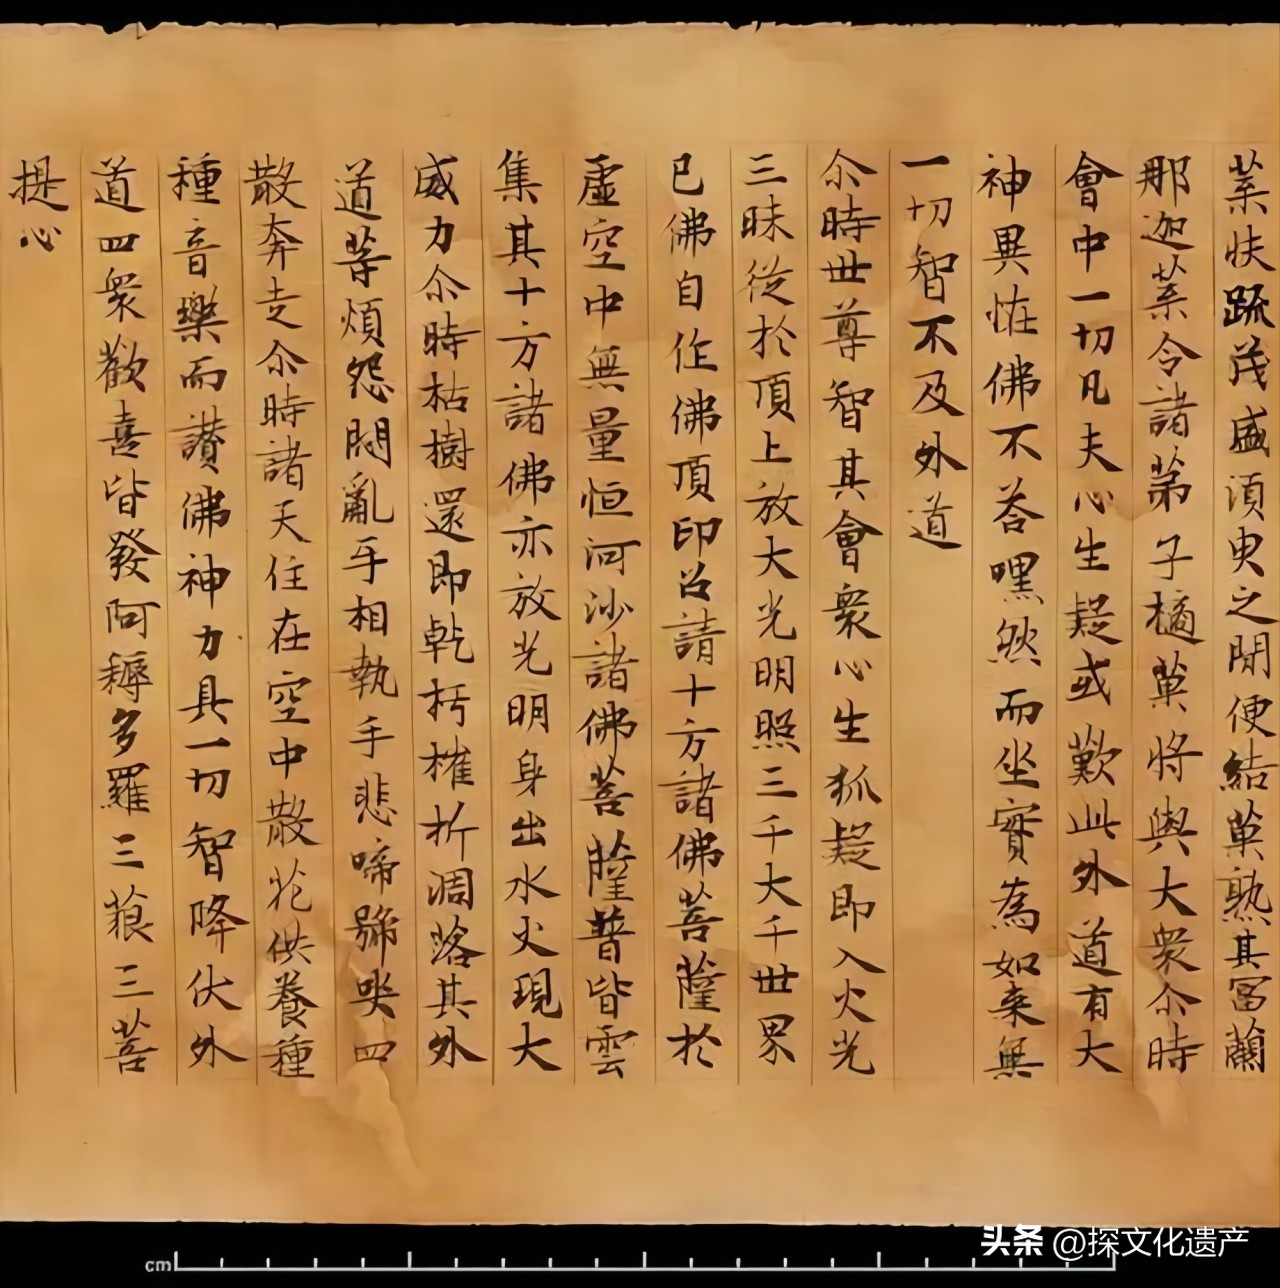 葉扶踈茂盛湏臾之間便結菓熟其冨蘭
那迦葉令諸弟子擿菓将與大衆尒時
會中一切凡夫心生疑或歎此外道有大
神異恠佛不荅嘿然而坐實為如来無
一切智不及外道
尒時世尊智其會衆心生狐疑即入火光
三昧従於頂上放大光明照三千大千世界
已佛自作佛頂印召請十方諸佛菩薩於
虚空中無量恒河沙諸佛菩薩普皆雲
集其十方諸佛亦放光明身出水火現大
威力尒時枯樹還即乾朽摧折凋落其外
道等煩怨悶亂手相執手悲啼號哭四
散奔走尒時諸天住在空中散花供養種
種音樂而讃佛神力具一切智降伏外
道四衆歡喜皆發阿耨多羅三藐三菩
提心
cm
头条 @探文化遗产